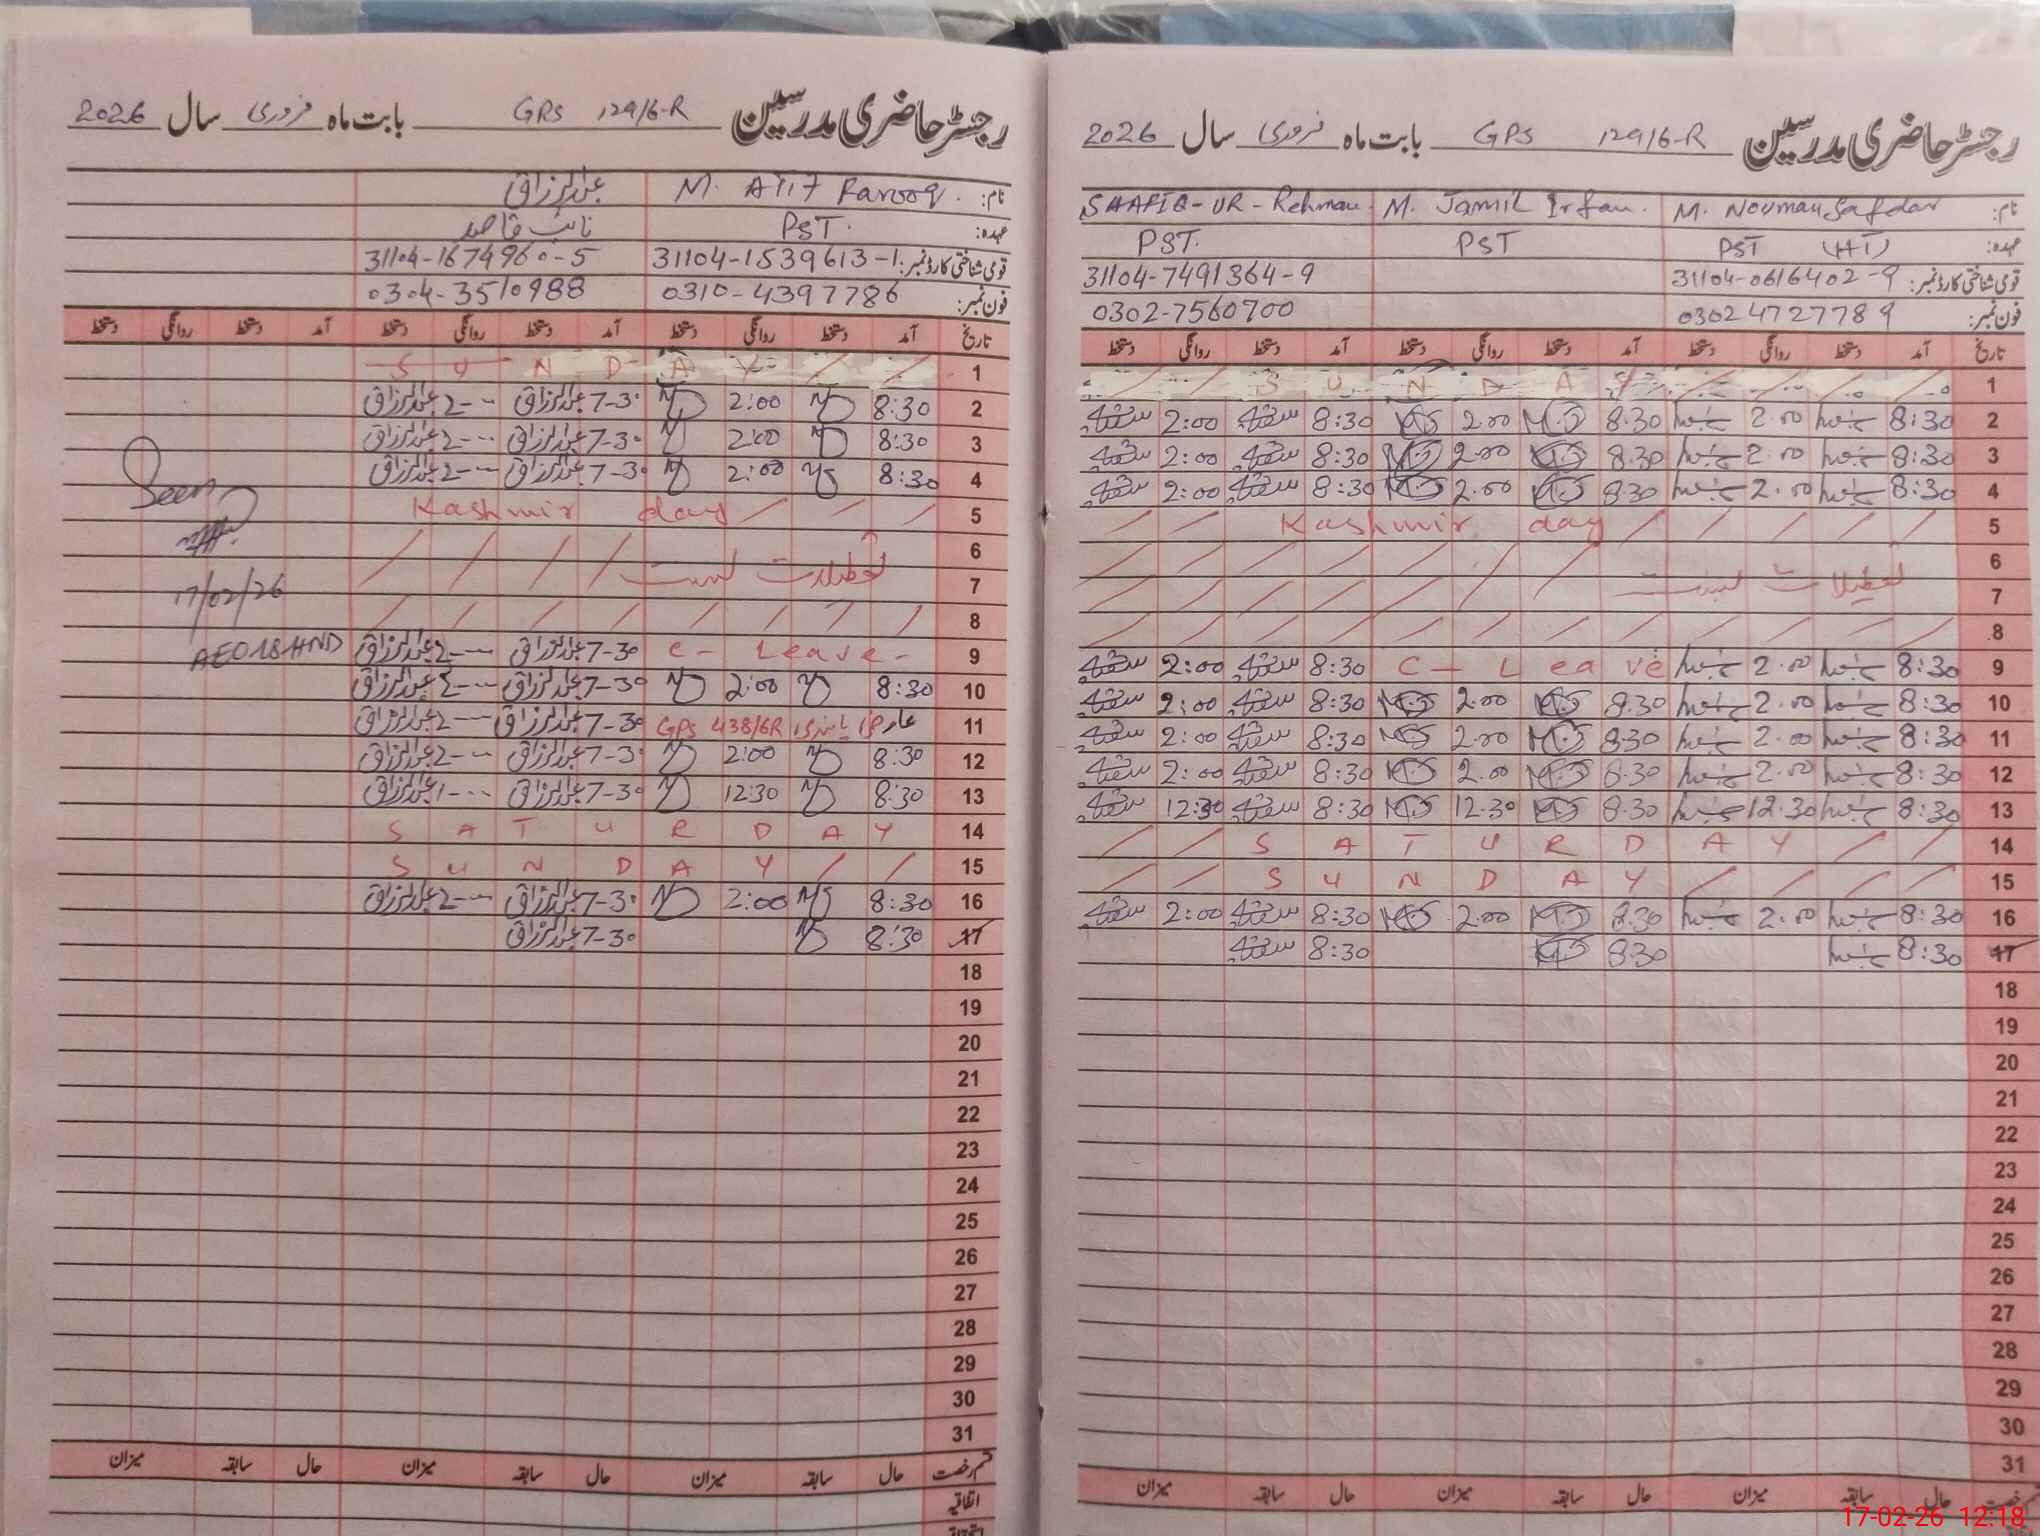 رجسٹر حاضری مدرسین GPS 129/6-R بابت ماہ فروری سال 2026
نام: M. Nouman Safdar M. Jamil Irfan. SHAFIQ-UR-Rehman
عہدہ: PST (HT) PST PST.
قومی شناختی کارڈ نمبر: 31104-0616402-9 31104-7491364-9
فون نمبر: 03024727789 0302-7560700
تاریخ آمد دستخط روانگی دستخط آمد دستخط روانگی دستخط آمد دستخط روانگی دستخط
1 / / S U N D A Y / /
2 8:30 2.00 8.30 2.00 8:30 2:00
3 8:30 2.00 8.30 2.00 8:30 2:00
4 8:30 2.00 8.30 2.00 8:30 2:00
5 / / Kashmir day / / / / /
6
7 تعطیلات
8
9 8:30 2.00 C - Leave 8:30 2:00
10 8:30 2.00 8.30 2.00 8:30 2:00
11 8:30 2.00 8.30 2.00 8:30 2:00
12 8:30 2.00 8.30 2.00 8:30 2:00
13 8:30 12.30 8.30 12.30 8:30 12:30
14 / / S A T U R D A Y / /
15 / / S U N D A Y / / / /
16 8:30 2.00 8.30 2.00 8:30 2:00
17 8:30 8.30 8:30
18
19
20
21
22
23
24
25
26
27
28
29
30
31
قسم رخصت حال سابقہ میزان حال سابقہ میزان حال سابقہ میزان
رجسٹر حاضری مدرسین GPS 129/6-R بابت ماہ فروری سال 2026
نام: M. ATIF Farooq. عبدالرزاق
عہدہ: PST. نائب قاصد
قومی شناختی کارڈ نمبر: 31104-1539613-1 31104-1674960-5
فون نمبر: 0310-4397786 0304-3510988
تاریخ آمد دستخط روانگی دستخط آمد دستخط روانگی دستخط آمد دستخط روانگی دستخط
1 S U N D A Y / /
2 8:30 2:00 7-30 عبدالرزاق 2-- عبدالرزاق
3 8:30 2:00 7-30 عبدالرزاق 2-- عبدالرزاق
4 8:30 2:00 7-30 عبدالرزاق 2-- عبدالرزاق
5 Kashmir day / / /
6
7 تعطیلات
8
9 C - Leave - 7-30 عبدالرزاق 2-- عبدالرزاق
10 8:30 2:00 7-30 عبدالرزاق 2-- عبدالرزاق
11 GPS 438/6R 7-30 عبدالرزاق 2-- عبدالرزاق
12 8:30 2:00 7-30 عبدالرزاق 2-- عبدالرزاق
13 8:30 12:30 7-30 عبدالرزاق 1-- عبدالرزاق
14 S A T U R D A Y
15 S U N D A Y / /
16 8:30 2:00 7-30 عبدالرزاق 2-- عبدالرزاق
17 8:30 7-30 عبدالرزاق
18
19
20
21
22
23
24
25
26
27
28
29
30
31
قسم رخصت حال سابقہ میزان حال سابقہ میزان حال سابقہ میزان
اتفاقیہ
Seen
17/02/26
AEO 18 HND
17-02-26 12:18